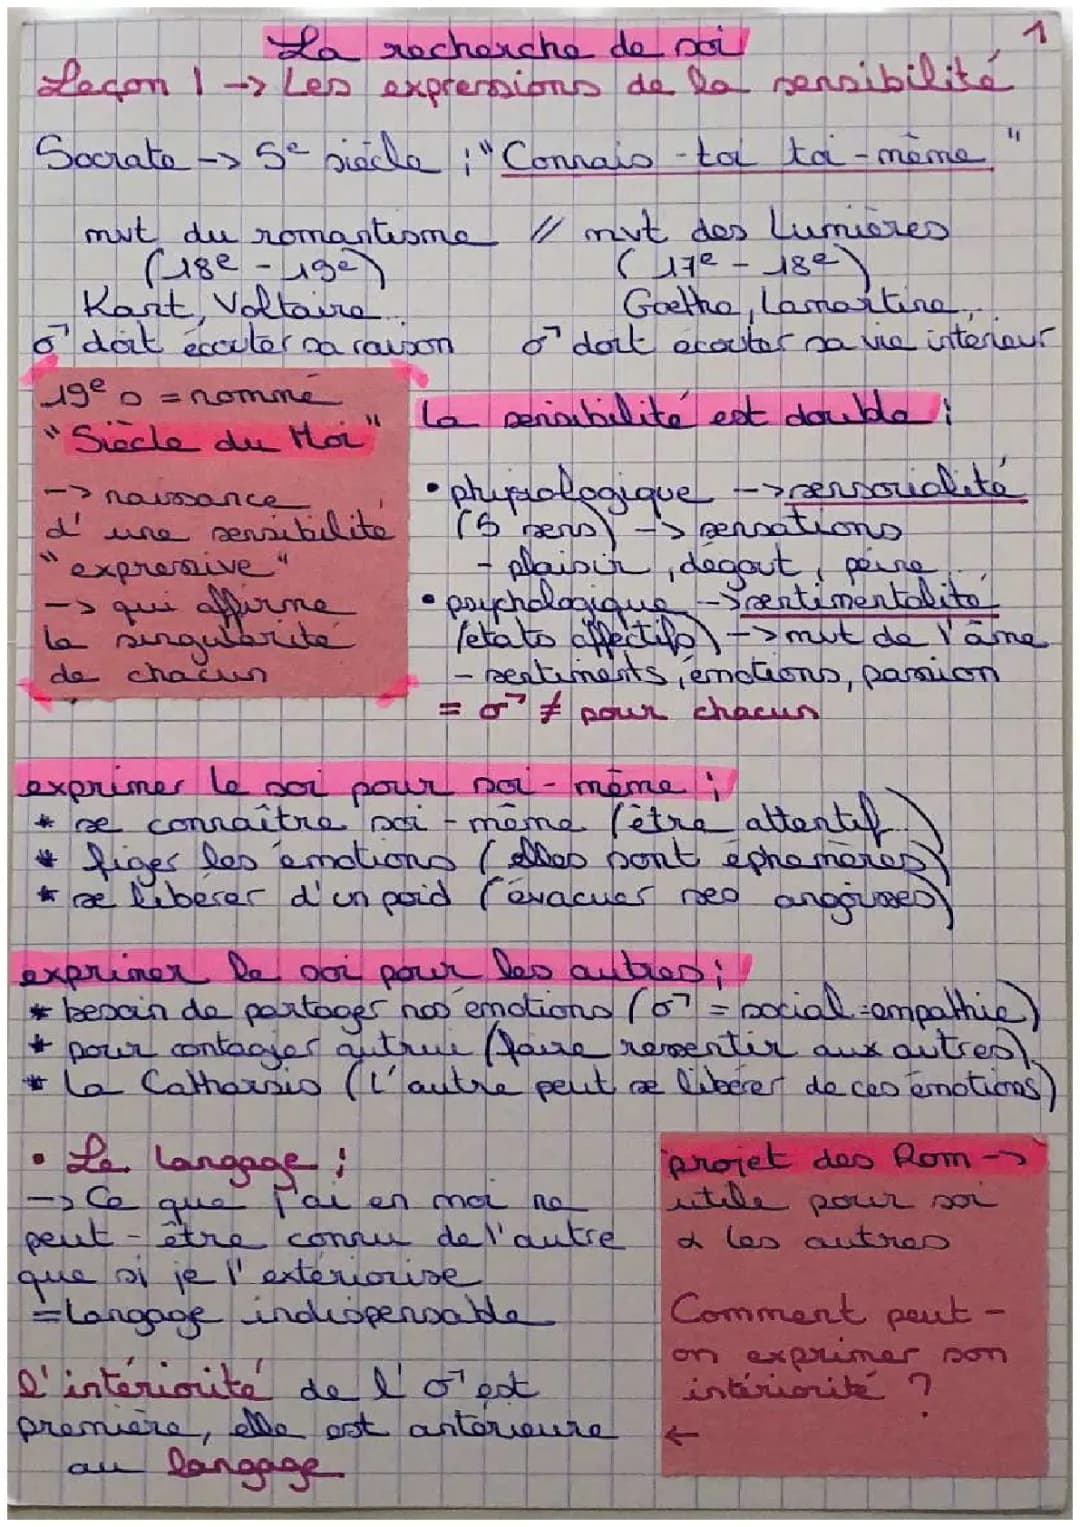 1
La recherche de soi
Leçon 1 -> Les expressions de la sensibilité
Socrate -> 5e siècle ; "Connais-toi toi-même"
mvt du romantisme // mvt des Lumières
(18e - 19e) (17e - 18e)
Kant, Voltaire... Goethe, Lamartine...
♂ doit écouter sa raison ♂ doit écouter sa vie interieur
19e s = nommé
"Siècle du Moi"
-> naissance
d'une sensibilité
"expressive"
-> qui affirme
la singularité
de chacun
La sensibilité est double :
• physiologique -> sensorialité
(5 sens) -> sensations
- plaisir, dégout, peine...
• psychologique -> sentimentalité
(états affectifs) -> mvt de l'âme
- sentiments, émotions, passion
= ♂ ≠ pour chacun
exprimer le soi pour soi-même ;
* se connaître soi-même (être attentif...)
* figer les émotions (elles sont éphémères)
* se libérer d'un poid (évacuer ses angoisses)
exprimer le soi pour les autres ;
* besoin de partager nos émotions (♂ = social = empathie)
* pour contager autrui (faire ressentir aux autres)
* La Catharsis (L'autre peut se libérer de ces émotions)
• Le langage ;
-> Ce que j'ai en moi ne
peut-être connu de l'autre
que si je l'extériorise
= langage indispensable
l'intériorité de l'♂ est
première, elle est antérieure
au langage
projet des Rom ->
utile pour soi
& les autres
Comment peut-
on exprimer son
intériorité ?
←